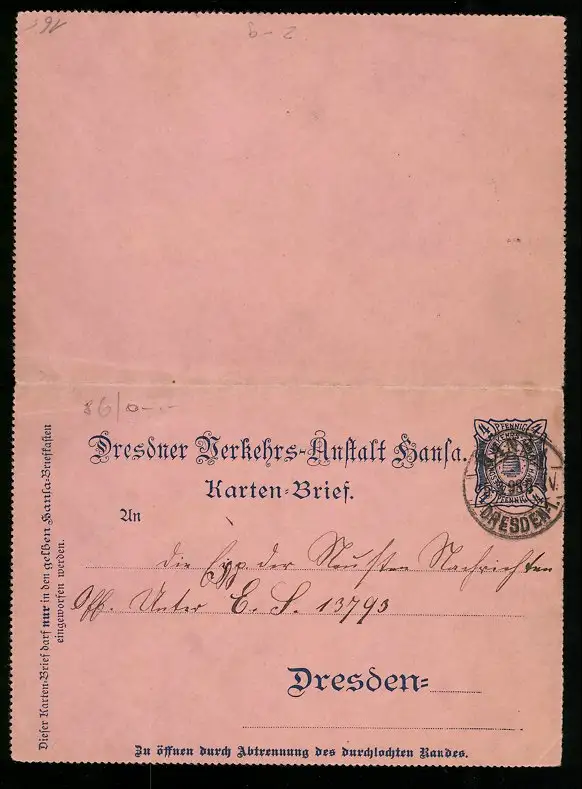 2-9
86/0-.-
Dresdner Verkehrs-Anstalt Hansa.
Karten-Brief.
4 PFENNIG 4
PFENNIG 4
DRESDEN
An
die Exp. der Neusten Nachrichten
Off. Unter E. S. 13793
Dresden=
Zu öffnen durch Abtrennung des durchlochten Randes.
Dieser Karten-Brief darf nur in den gelben Hansa-Briefkasten
eingeworfen werden.